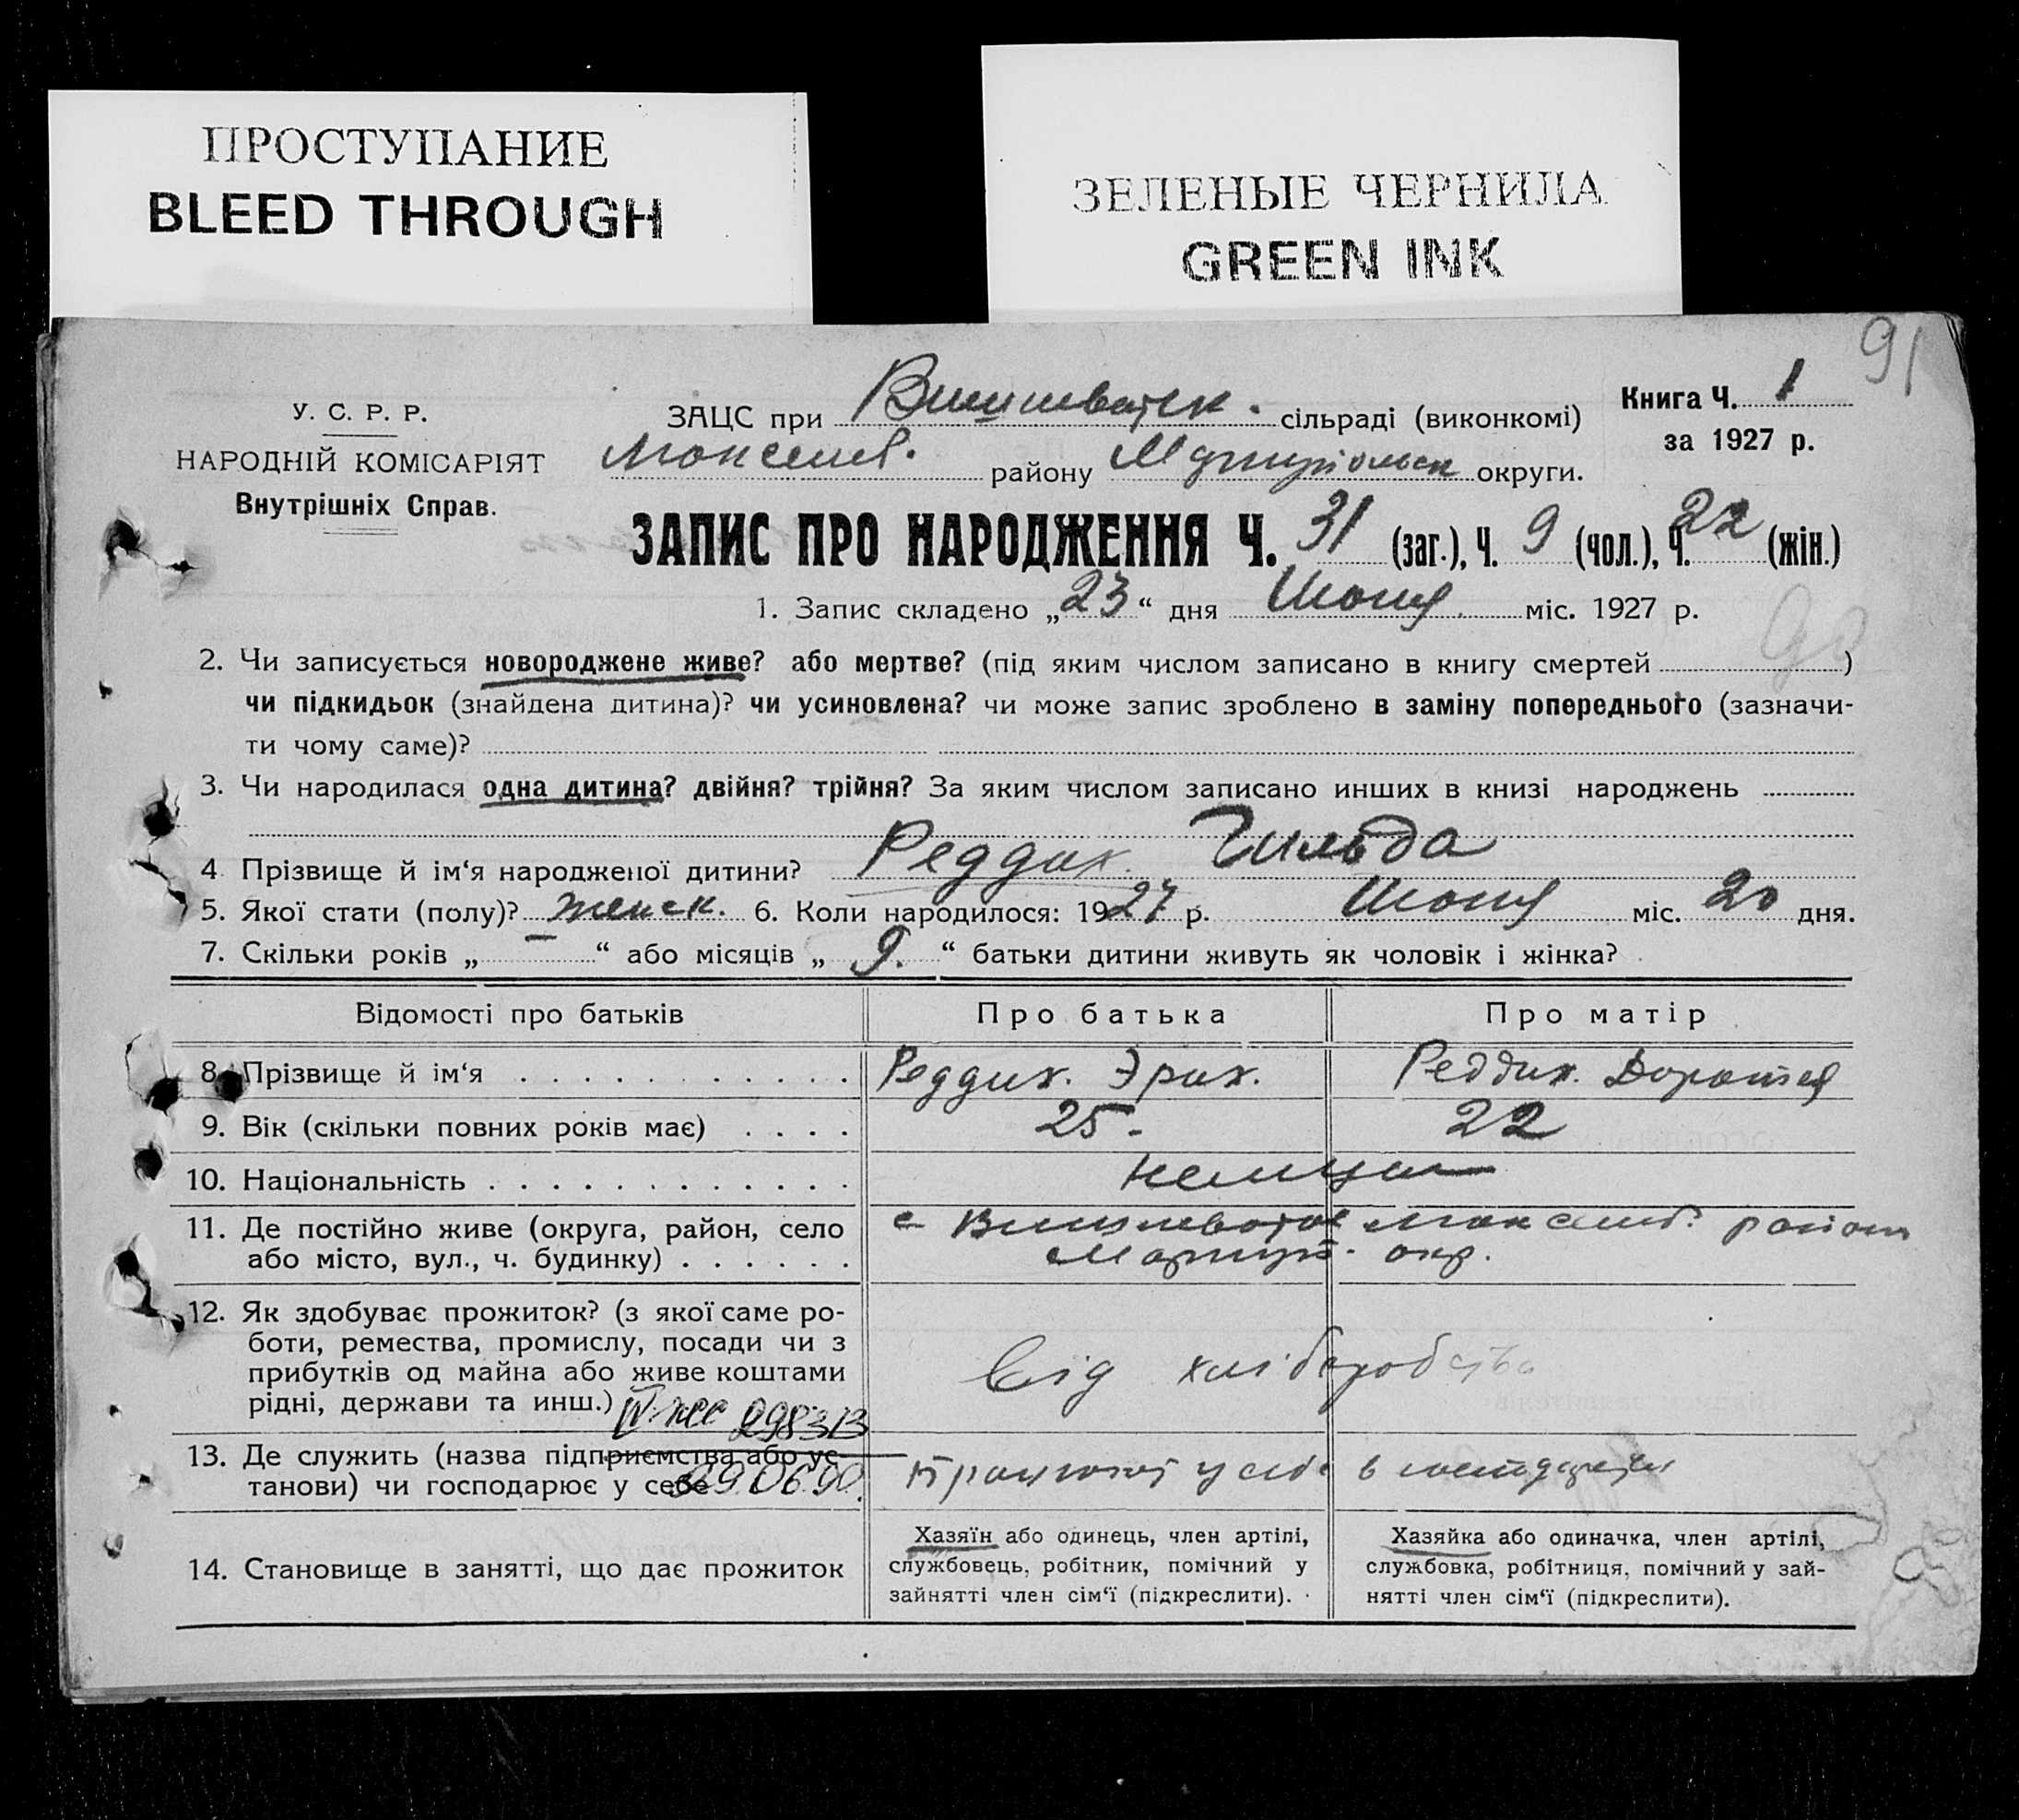 ПРОСТУПАНИЕ
BLEED THROUGH
ЗЕЛЕНЫЕ ЧЕРНИЛА
GREEN INK
91
У. С. Р. Р.
НАРОДНІЙ КОМІСАРІЯТ
Внутрішніх Справ.
ЗАЦС при сільраді (виконкомі)
району округи.
Книга Ч. 1
за 1927 р.
ЗАПИС ПРО НАРОДЖЕННЯ Ч. 31 (заг.), Ч. 9 (чол.), Ч. 22 (жін.)
1. Запис складено „23“ дня Июня міс. 1927 р.
90
2. Чи записується новороджене живе? або мертве? (під яким числом записано в книгу смертей )
чи підкидьок (знайдена дитина)? чи усиновлена? чи може запис зроблено в заміну попереднього (зазначи-
ти чому саме)?
3. Чи народилася одна дитина? двійня? трійня? За яким числом записано инших в книзі народжень
4 Прізвище й ім‘я народженої дитини? Реддих. Гильда
5. Якої стати (полу)? женск. 6. Коли народилося: 1927 р. Июня міс. 20 дня.
7. Скільки років „ — “ або місяців „ 9. “ батьки дитини живуть як чоловік і жінка?
Відомості про батьків Про батька Про матір
8. Прізвище й ім‘я Реддих. Эрих. Реддих. Доротея
9. Вік (скільки повних років має) 25 - 22
10. Національність немцы
11. Де постійно живе (округа, район, село
або місто, вул., ч. будинку)
с район
Мариуп. окр.
12. Як здобуває прожиток? (з якої саме ро-
боти, ремества, промислу, посади чи з
прибутків од майна або живе коштами
рідні, держави та инш.)
від хліборобства
298313
13. Де служить (назва підприємства або ус-
танови) чи господарює у себе
29.06.90.
в
14. Становище в занятті, що дає прожиток
Хазяїн або одинець, член артілі,
службовець, робітник, помічний у
зайнятті член сім‘ї (підкреслити).
Хазяйка або одиначка, член артілі,
службовка, робітниця, помічний у зай-
нятті член сім‘ї (підкреслити).